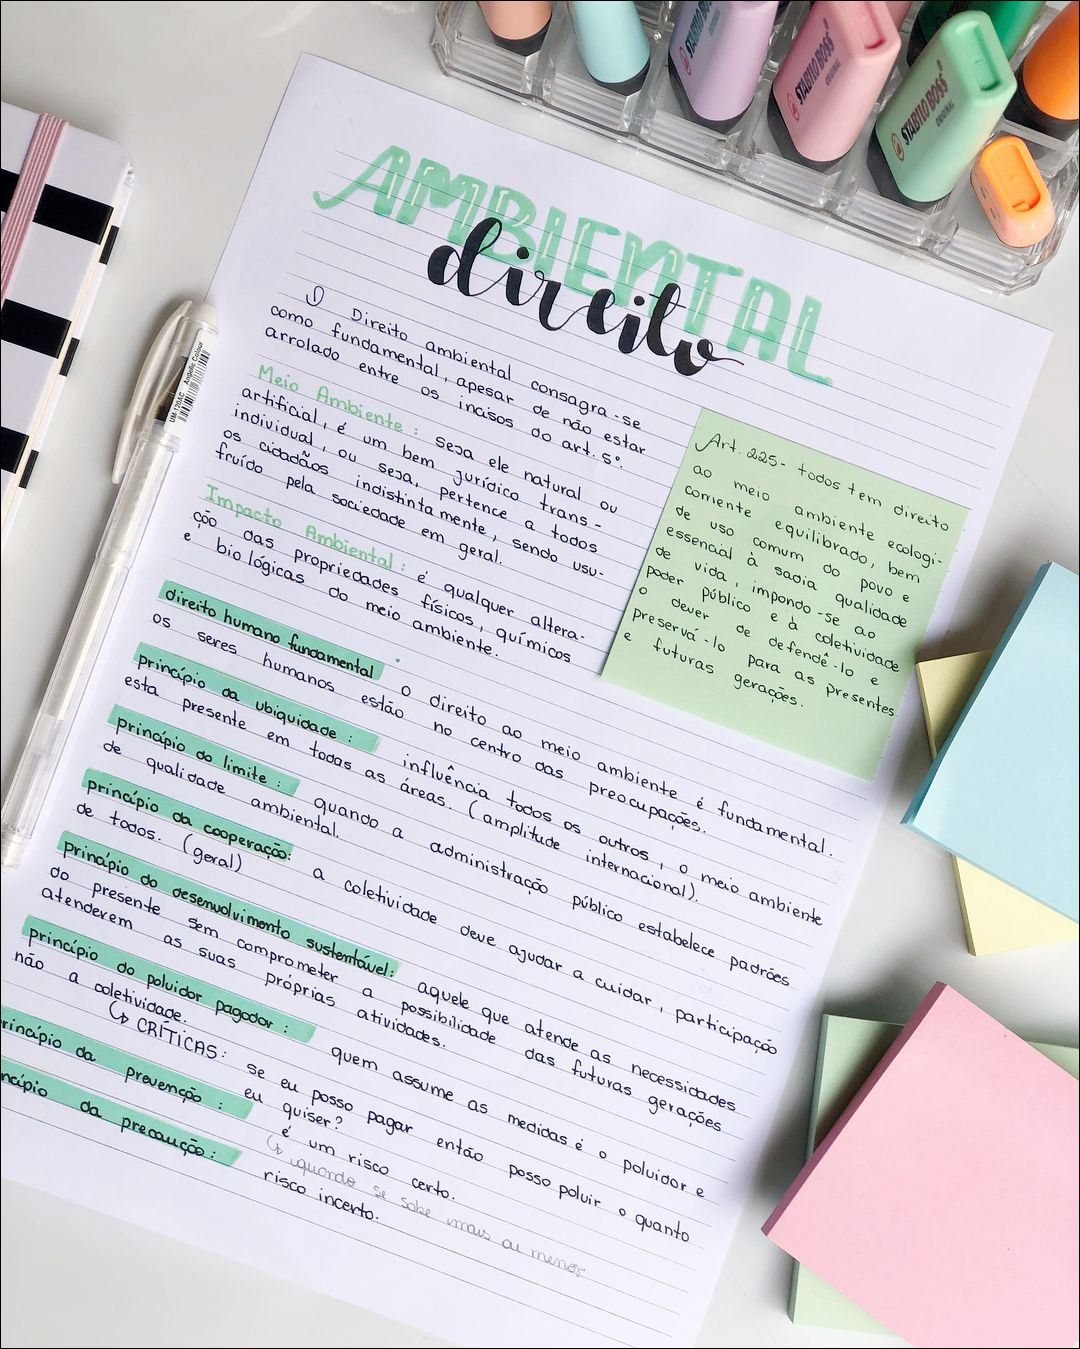 STABILO BOSS
ORIGINAL
STABILO BOSS
ORIGINAL
AMBIENTAL
direito
UM-120AC Angelic Colour
O Direito ambiental consagra-se
como fundamental, apesar de não estar
arrolado entre os incisos do art. 5º.
Meio Ambiente: seja ele natural ou
artificial, é um bem jurídico trans-
individual, ou seja, pertence a todos
os cidadãos indistintamente, sendo usu-
fruído pela sociedade em geral.
Impacto Ambiental: é qualquer altera-
ção das propriedades físicas, químicos
e biológicas do meio ambiente.
Art. 225- todos tem direito
ao meio ambiente ecologi-
camente equilibrado, bem
de uso comum do povo e
essencial à sadia qualidade
de vida, impondo-se ao
poder público e à coletividade
o dever de defendê-lo e
preservá-lo para as presentes
e futuras gerações.
direito humano fundamental o direito ao meio ambiente é fundamental.
os seres humanos estão no centro das preocupações.
princípio da ubiquidade: influência todos os outros, o meio ambiente
esta presente em todas as áreas. (amplitude internacional).
princípio do limite: quando a administração público estabelece padrões
de qualidade ambiental.
princípio da cooperação: a coletividade deve ajudar a cuidar, participação
de todos. (geral)
princípio do desenvolvimento sustentável: aquele que atende as necessidades
do presente sem comprometer a possibilidade das futuras gerações
atenderem as suas próprias atividades.
princípio do poluidor pagador: quem assume as medidas é o poluidor e
não a coletividade.
↳ CRÍTICAS: se eu posso pagar então posso poluir o quanto
eu quiser?
rincípio da prevenção: é um risco certo.
↳ quando se sabe mais ou menos
ncípio da precaução: risco incerto.